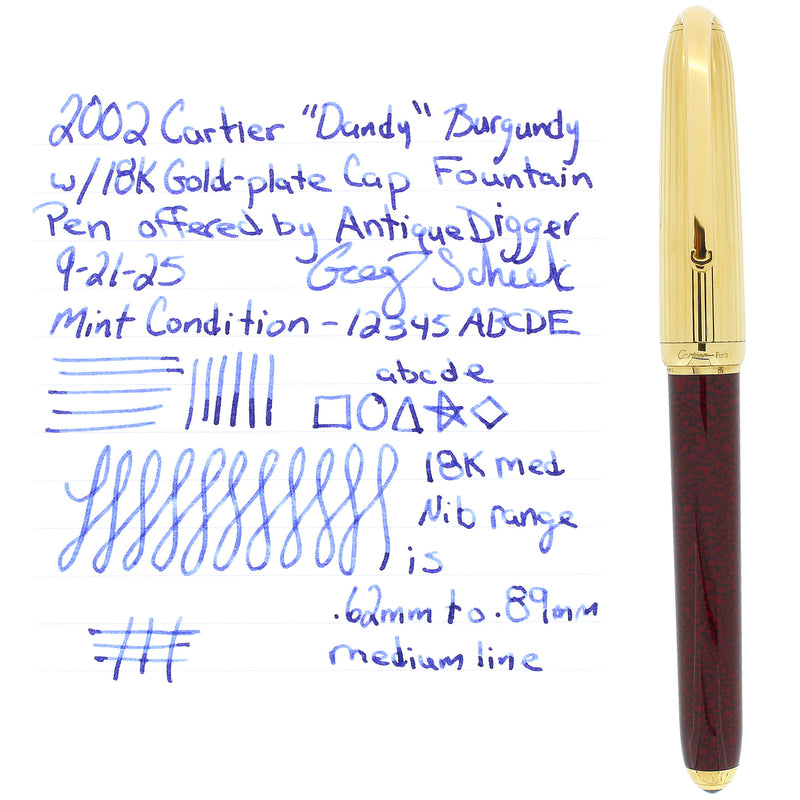 2002 Cartier "Dandy" Burgundy
w/18K Gold-plate Cap Fountain
Pen offered by Antique Digger
9-21-25 Greg Scheek
Mint Condition - 12345 ABCDE
abcde
18K med
Nib range
is
.62mm to .89mm
medium line
Cartier Paris